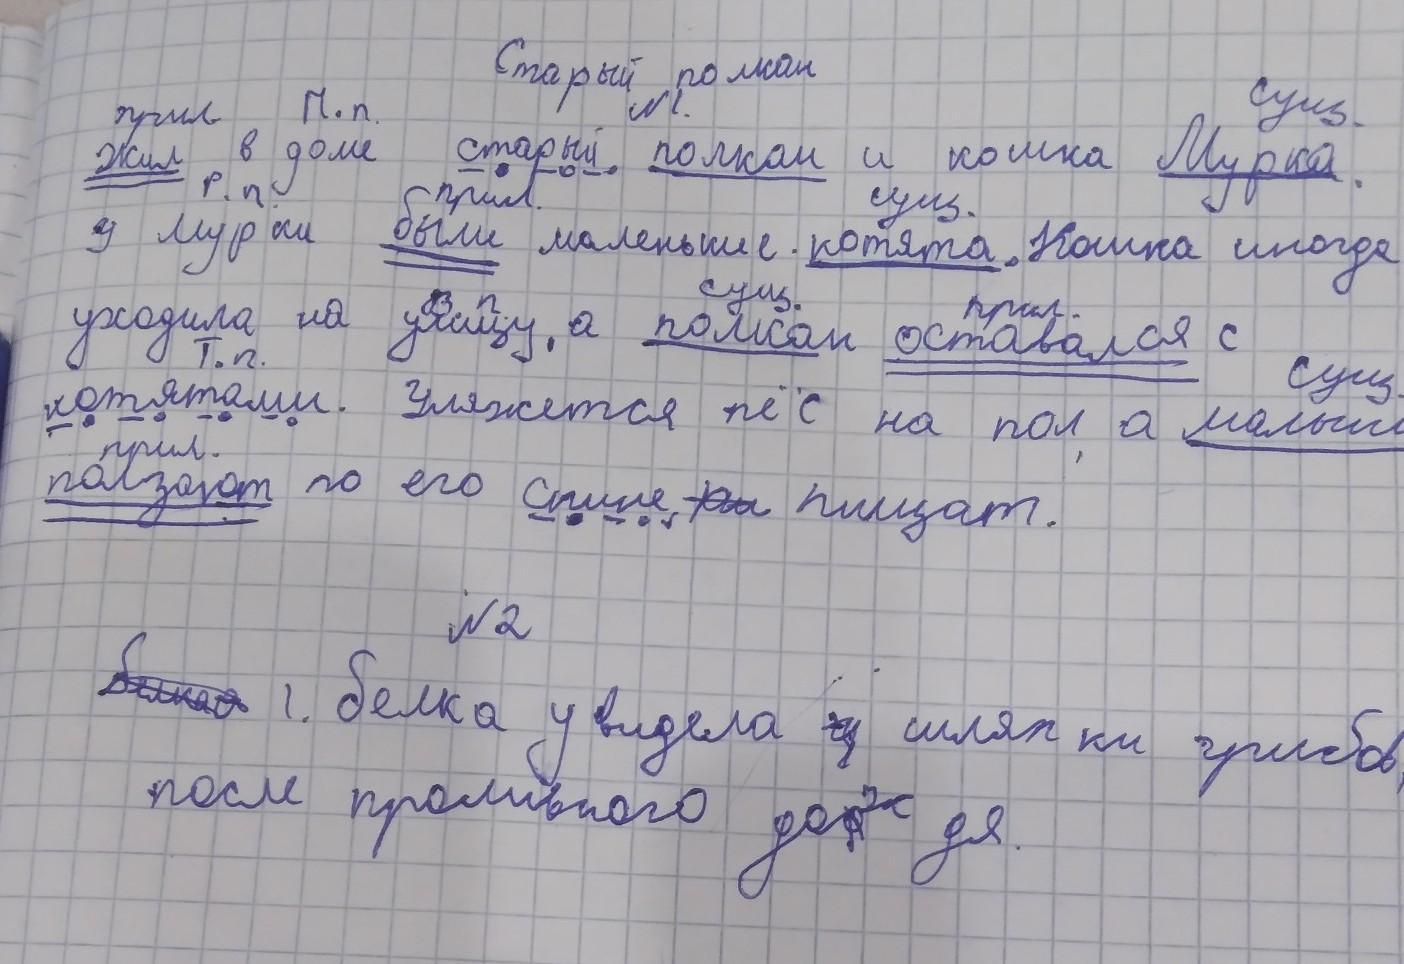 Старый полкан
№1.
прил П.п. сущ.
Жил в доме старый полкан и кошка Мурка.
Р.п. прил. сущ.
У Мурки были маленькие котята. Кошка иногда
В п сущ. прил.
уходила на улицу, а полкан оставался с
Т.п. сущ.
котятами. Уляжется пёс на пол, а малыши
прил.
ползают по его спине, пищат.
№2
1. белка увидела шляпки грибов,
после проливного дождя.